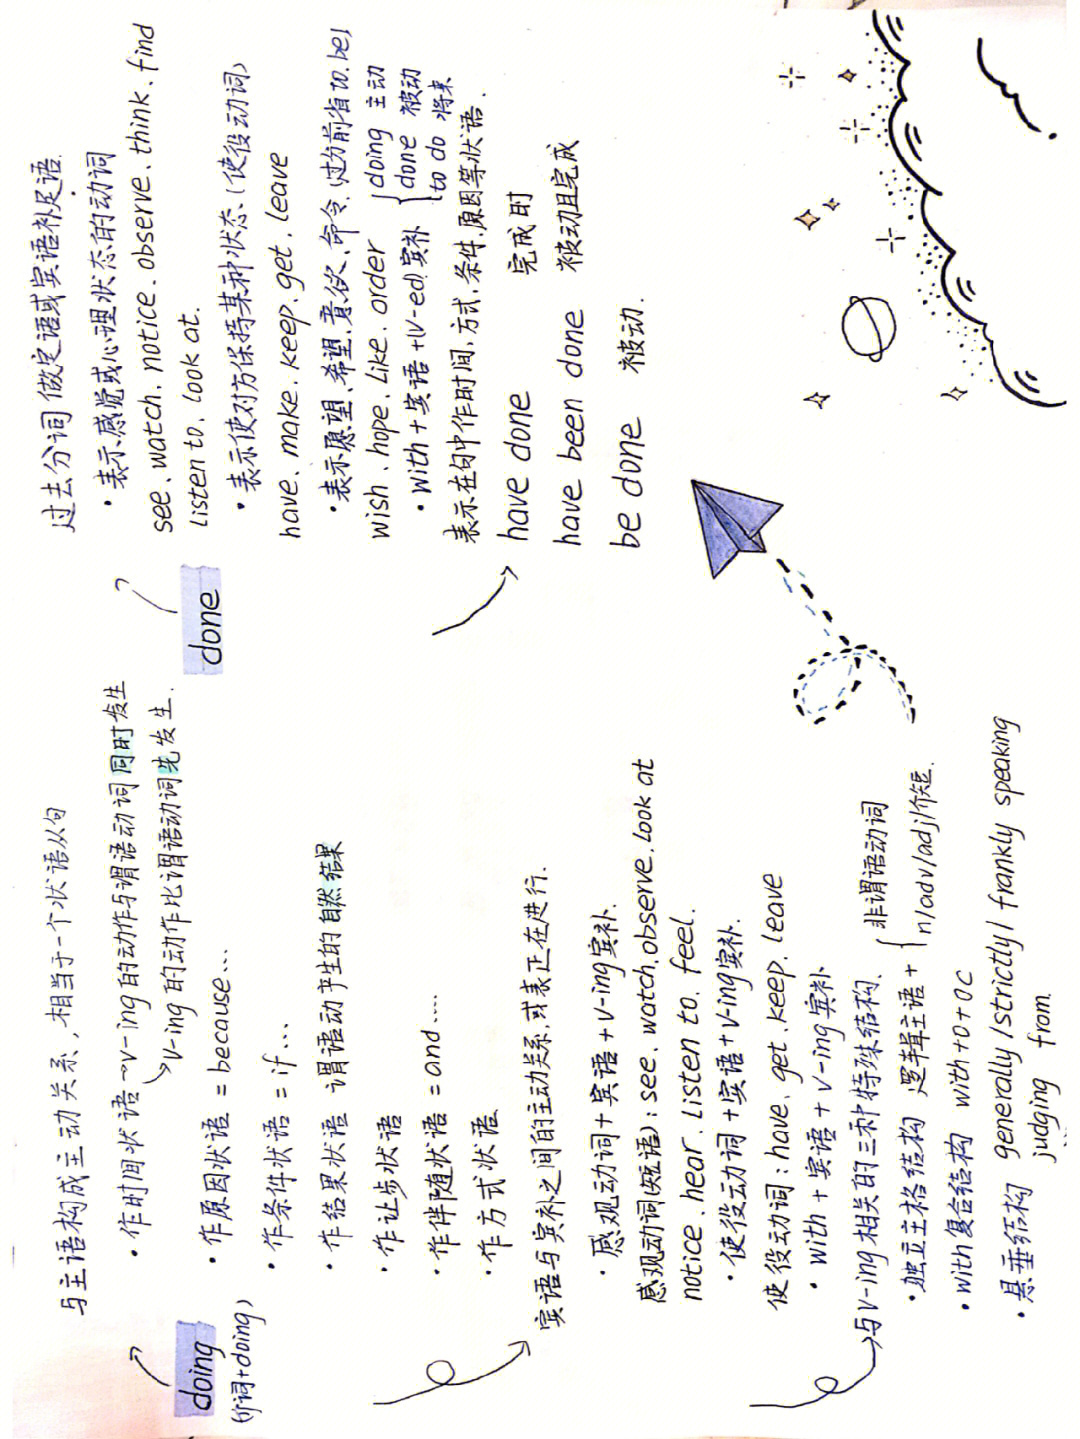 doing
(介词+doing)
与主语构成主动关系,相当于一个状语从句
·作时间状语 v-ing的动作与谓语动词同时发生
v-ing的动作比谓语动词先发生.
·作原因状语 = because...
·作条件状语 = if...
·作结果状语 谓语动产生的自然结果
·作让步状语
·作伴随状语 = and....
·作方式状语
宾语与宾补之间的主动关系,或表正在进行.
·感观动词+宾语+v-ing宾补.
感观动词(短语):see、watch、observe、look at
notice、hear、listen to、feel.
·使役动词+宾语+v-ing宾补.
使役动词:have、get、keep、leave
·with+宾语+v-ing宾补
与v-ing相关的三种特殊结构.
·独立主格结构 逻辑主语+ { 非谓语动词
n/adv/adj/介短.
·with复合结构 with+o+oc
·悬垂结构 generally/strictly/frankly speaking
judging from
done
过去分词 做定语或宾语补足语.
·表示感觉或心理状态的动词
see、watch、notice、observe、think、find
listen to、look at.
·表示使对方保持某种状态、(使役动词)
have、make、keep、get、leave
·表示愿望、希望、意欲、命令、(过分前省to be)
wish、hope、like、order
·with+宾语+(v-ed)宾补 { doing 主动
done 被动
to do 将来
表示在句中作时间,方式,条件,原因等状语.
have done 完成时
have been done 被动且完成
be done 被动.